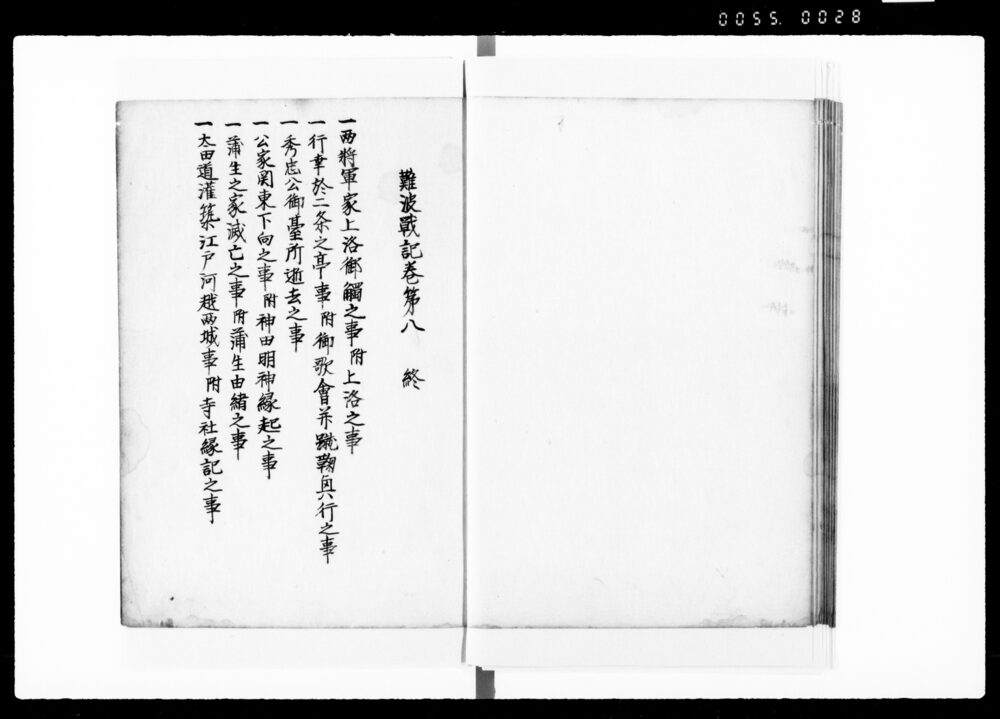 0055. 0028
難波戰記巻第八　終
一両將軍家上洛御觸之事附上洛之事
一行幸於二条之亭事附御歌會并蹴鞠興行之事
一秀忠公御臺所逝去之事
一公家関東下向之事附神田明神縁起之事
一蒲生之家滅亡之事附蒲生由緒之事
一太田道灌築江戸河越両城事附寺社縁記之事